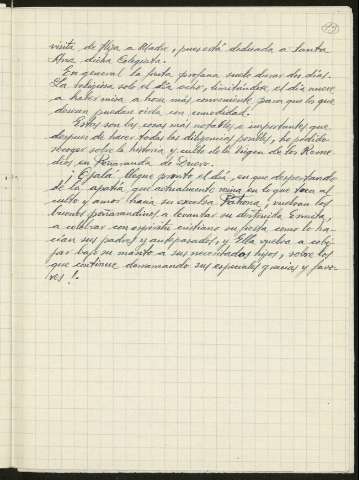 19
visita de Hija a Madre, pues está dedicada a Santa
Ana dicha Colegiata.
En general la fiesta profana suele durar dos días.
La religiosa solo el día ocho, limitándose el día nueve
a haber misa a hora más conveniente para que los que
deseen puedan oirla con comodidad.
Estas son las cosas más notables e importantes que
después de hacer todas las diligencias posibles, he podido
recoger sobre la historia y culto de la Virgen de los Reme
dios en Peñaranda de Duero.
¡Ojalá llegue pronto el día, en que despertando
de la apatía que actualmente reina en lo que toca al
culto y amor hacia su excelsa Patrona, vuelvan los
buenos peñarandinos a levantar su destruida Ermita,
a celebrar con espíritu cristiano su fiesta como lo ha-
cían sus padres y antepasados, y Ella vuelva a cobi-
jar bajo su manto a sus necesitados hijos, sobre los
que continue derramando sus especiales gracias y favo-
res!.